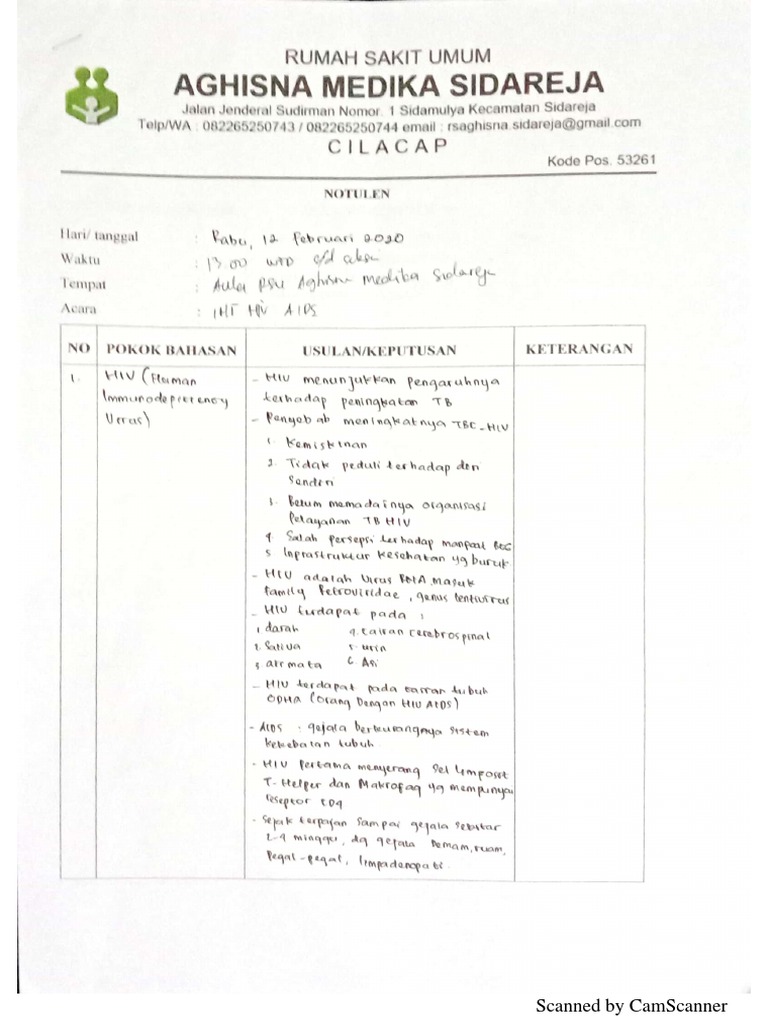 RUMAH SAKIT UMUM
AGHISNA MEDIKA SIDAREJA
Jalan Jenderal Sudirman Nomor. 1 Sidamulya Kecamatan Sidareja
Telp/WA : 082265250743 / 082265250744 email : rsaghisna.sidareja@gmail.com
CILACAP
Kode Pos. 53261
NOTULEN
Hari/ tanggal : Rabu, 12 Februari 2020
Waktu : 13.00 s/d
Tempat : Aula RSU Aghisna Medika Sidareja
Acara : IHT HIV AIDS
NO POKOK BAHASAN USULAN/KEPUTUSAN KETERANGAN
1. HIV (Human
Immunodeficiency
Virus)
- HIV menunjukkan pengaruhnya
terhadap peningkatan TB
- Penyebab meningkatnya TBC-HIV
1. Kemiskinan
2. Tidak peduli terhadap diri
Sendiri
3. Belum memadainya organisasi
Pelayanan TB HIV
4. Salah persepsi terhadap manfaat
5 Infrastruktur kesehatan yg buruk
- HIV adalah Virus RNA, Masuk
family Retroviridae, genus lentivirus
- HIV terdapat pada :
1 darah 4. cairan cerebrospinal
2. Saliva 5. urin
3. air mata 6. Asi
- HIV terdapat pada cairan tubuh
ODHA (Orang Dengan HIV AIDS)
- AIDS : gejala berkurangnya sistem
kekebalan tubuh
- HIV Pertama menyerang Sel limfosit
T-Helper dan Makrofag yg mempunyai
reseptor CD4
- Sejak terpajan sampai gejala sekitar
2-4 minggu, dg gejala Demam, ruam,
Pegal-pegal, limfadenopati.
Scanned by CamScanner